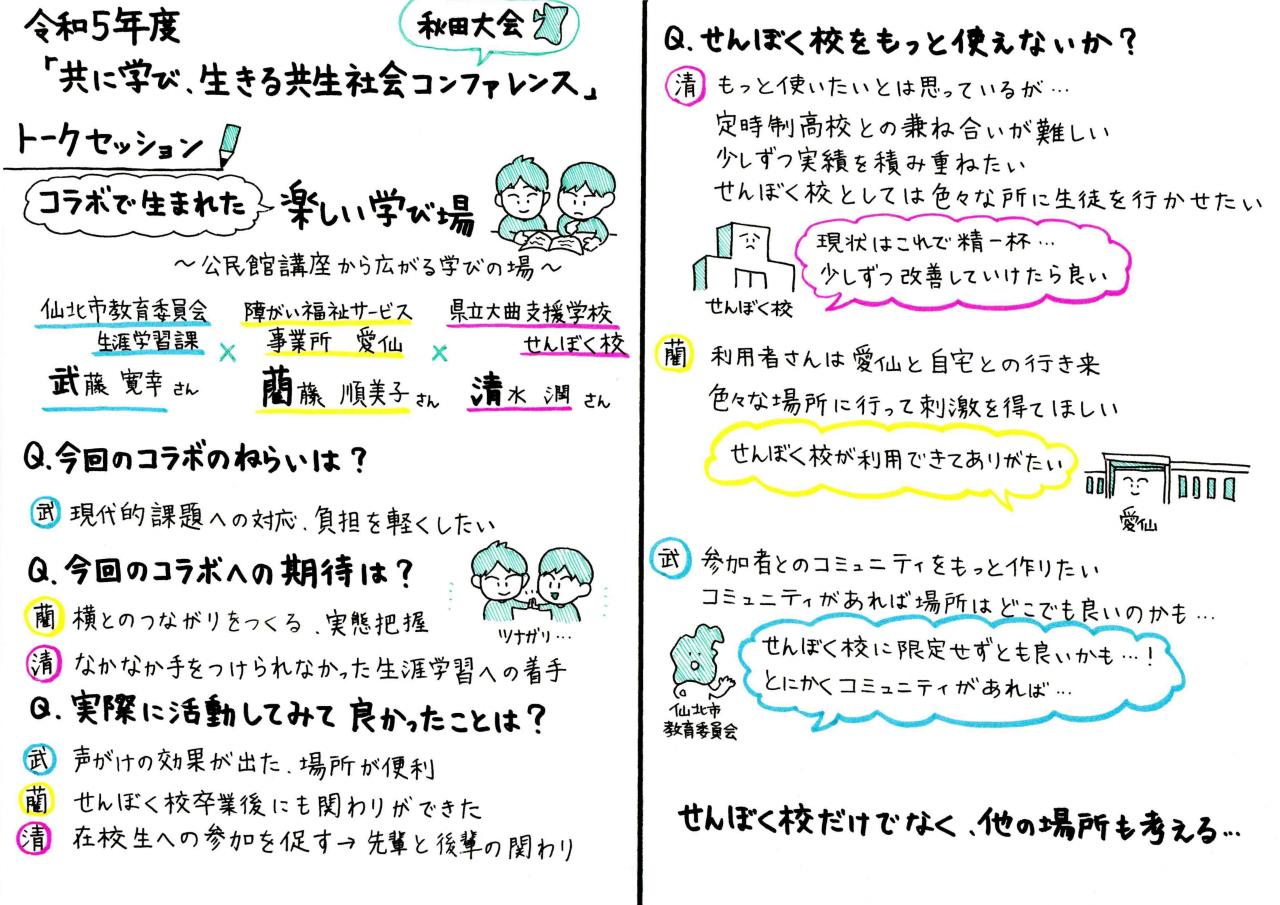 令和5年度
秋田大会
「共に学び、生きる共生社会コンファレンス」
トークセッション
コラボで生まれた 楽しい学び場
～公民館講座から広がる学びの場～
仙北市教育委員会
生涯学習課
×
障がい福祉サービス
事業所 愛仙
×
県立大曲支援学校
せんぼく校
武藤 寛幸さん
藺藤 順美子さん
清水 潤さん
Q.今回のコラボのねらいは？
武 現代的課題への対応、負担を軽くしたい
Q.今回のコラボへの期待は？
藺 横とのつながりをつくる、実態把握
清 なかなか手をつけられなかった生涯学習への着手
ツナガリ…
Q.実際に活動してみて良かったことは？
武 声がけの効果が出た、場所が便利
藺 せんぼく校卒業後にも関わりができた
清 在校生への参加を促す→先輩と後輩の関わり
Q.せんぼく校をもっと使えないか？
清 もっと使いたいとは思っているが…
定時制高校との兼ね合いが難しい
少しずつ実績を積み重ねたい
せんぼく校としては色々な所に生徒を行かせたい
現状はこれで精一杯…
少しずつ改善していけたら良い
せんぼく校
藺 利用者さんは愛仙と自宅との行き来
色々な場所に行って刺激を得てほしい
せんぼく校が利用できてありがたい
愛仙
武 参加者とのコミュニティをもっと作りたい
コミュニティがあれば場所はどこでも良いのかも…
せんぼく校に限定せずとも良いかも…！
とにかくコミュニティがあれば…
仙北市
教育委員会
せんぼく校だけでなく、他の場所も考える…